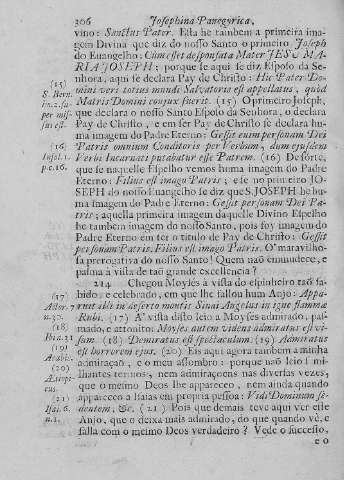 206 Josephina Panegyrica,
vino: Sanctus Pater. Esta he tambem a primeira ima-
gem Divina que diz do nosso Santo o primeiro Joseph
do Euangelho: Cùm esset desponsata Mater JESU MA-
RIA JOSEPH; porque se aqui se diz Esposo da Se-
nhora, aqui se declara Pay de Christo: Hic Pater Do-
(15)
mini veri totius mundi Salvatoris est appellatus, quòd
S. Bern.
Matris Domini conjux fuerit. (15) O primeiro Joseph,
que declara o nosso Santo Esposo da Senhora, o declara
Pay de Christo, e em ser Pay de Christo se declara hu-
ma imagem do Padre Eterno: Gessit enim personam Dei
(16)
Patris omnium Conditoris per Verbum, dum ejusdem
Verbi Incarnati putabatur esse Patrem. (16) De sorte,
que se naquelle Espelho vemos huma imagem do Padre
Eterno: Filius est imago Patris; este no primeiro JO-
SEPH do nosso Euangelho se diz que S. JOSEPH he hu-
ma imagem do Padre Eterno: Gessit personam Dei Pa-
tris; aquella primeira imagem daquelle Divino Espelho
he tambem imagem do nosso Santo, pois foy imagem do
Padre Eterno em ter o titulo de Pay de Christo: Gessit
personam Patris. Filius est imago Patris. O' maravilho-
sa prerogativa do nosso Santo! Quem naõ emmudece, e
pasma à vista de taõ grande excellencia?
214 Chegou Moysés à vista do espinheiro taõ sa-
(17)
bido, e celebrado, em que lhe fallou hum Anjo: Appa-
Actor. 7.
ruit illi in deserto montis Sinai Angelus in igne flammæ
n. 30.
Rubi. (17) A' vista disto leio a Moysés admirado, pas-
(18)
mado, e attonito: Moyses autem videns admiratus est vi-
Ibi n. 31
sum. (18) Demiratus est spectaculum. (19) Admiratus
(19)
est horrorem ejus. (20) Eis aqui agora tambem a minha
admiraçaõ, e o meu assombro: porque naõ leio simi-
(20)
lhantes termos, nem admiraçoens nas diversas vezes,
que o mesmo Deos lhe appareceo, nem ainda quando
(21)
appareceo a Isaias em propria pessoa: Vidi Dominum se-
Isai. 6.
dentem, &c. (21) Pois que demais teve aqui ver este
n. 1.
Anjo, que o deixa mais admirado, do que quando vê, e
falla com o mesmo Deos verdadeiro? Vede o successo,
e o